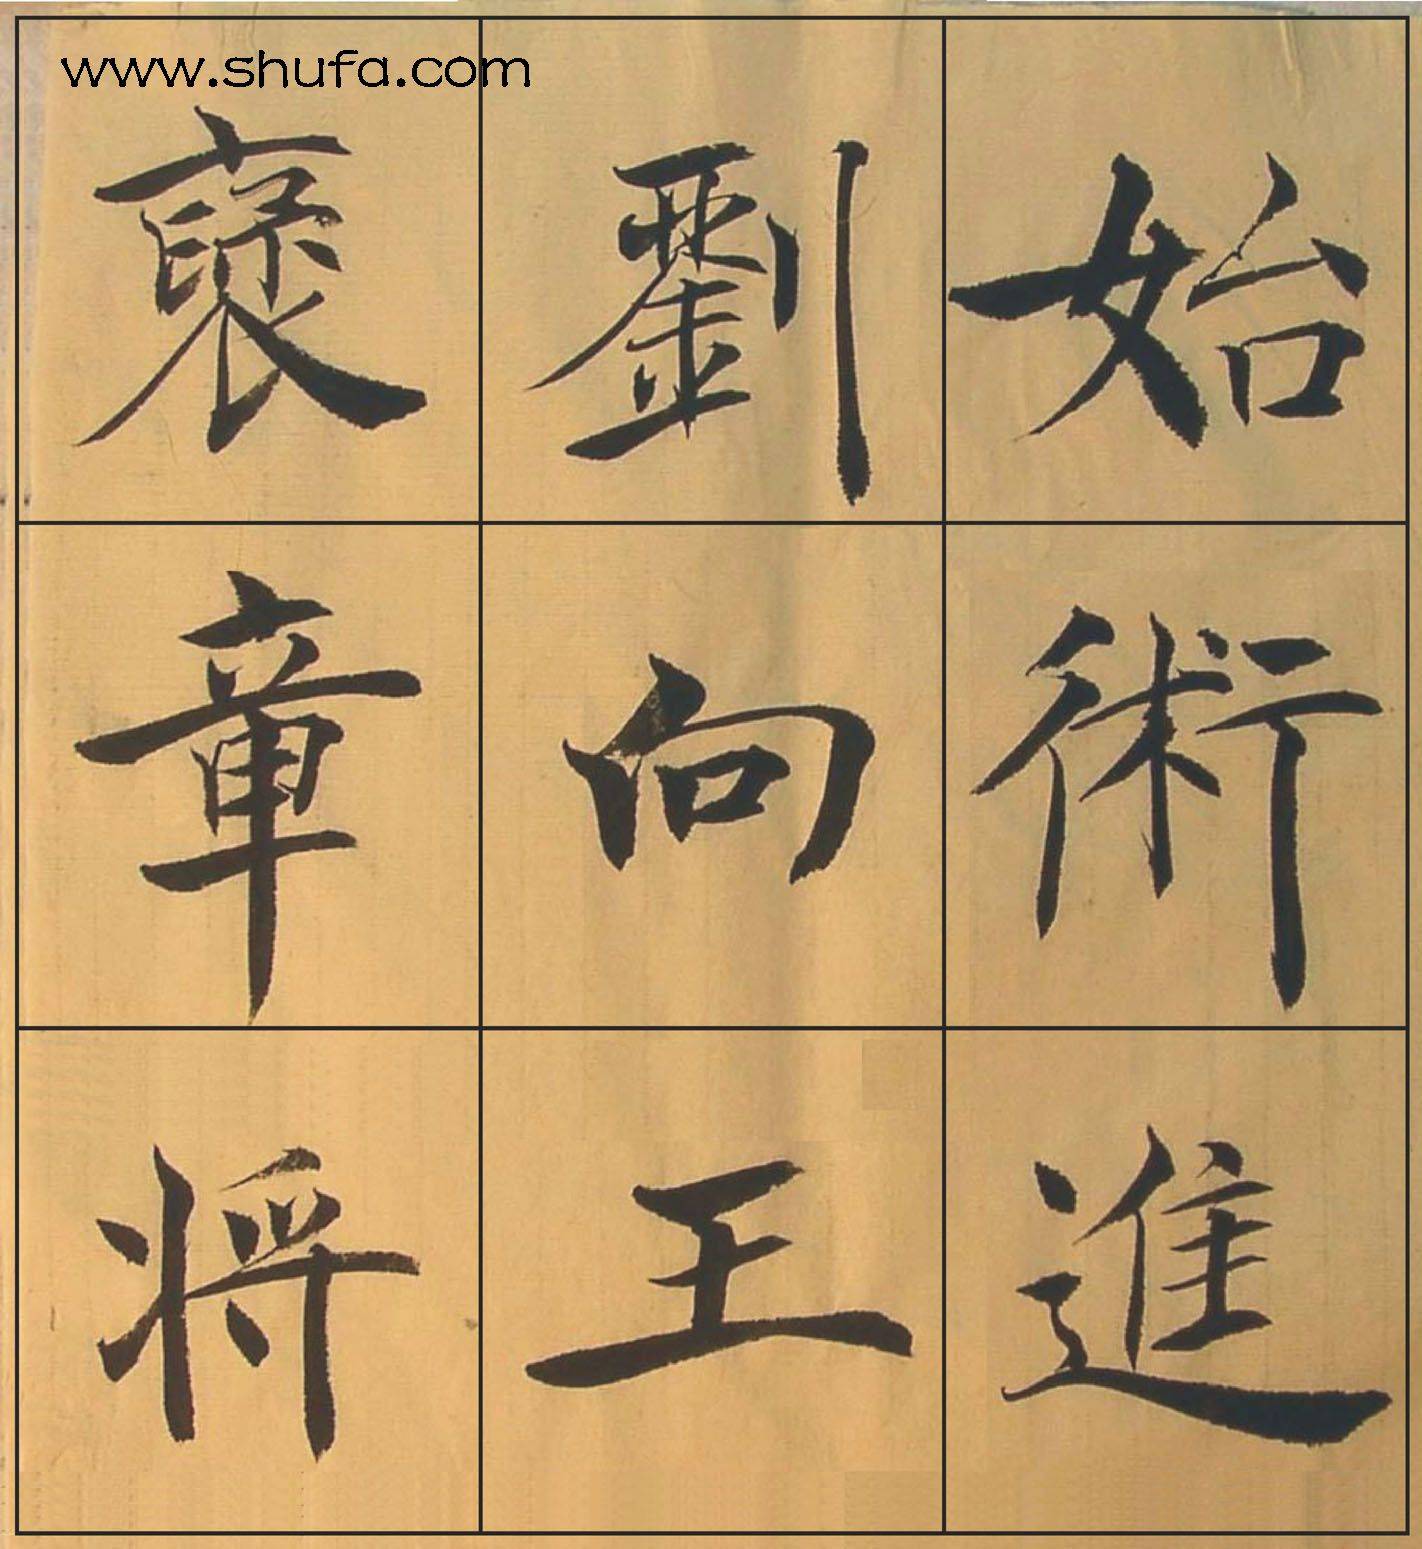 www.shufa.com
始術進
劉向王
褒章将